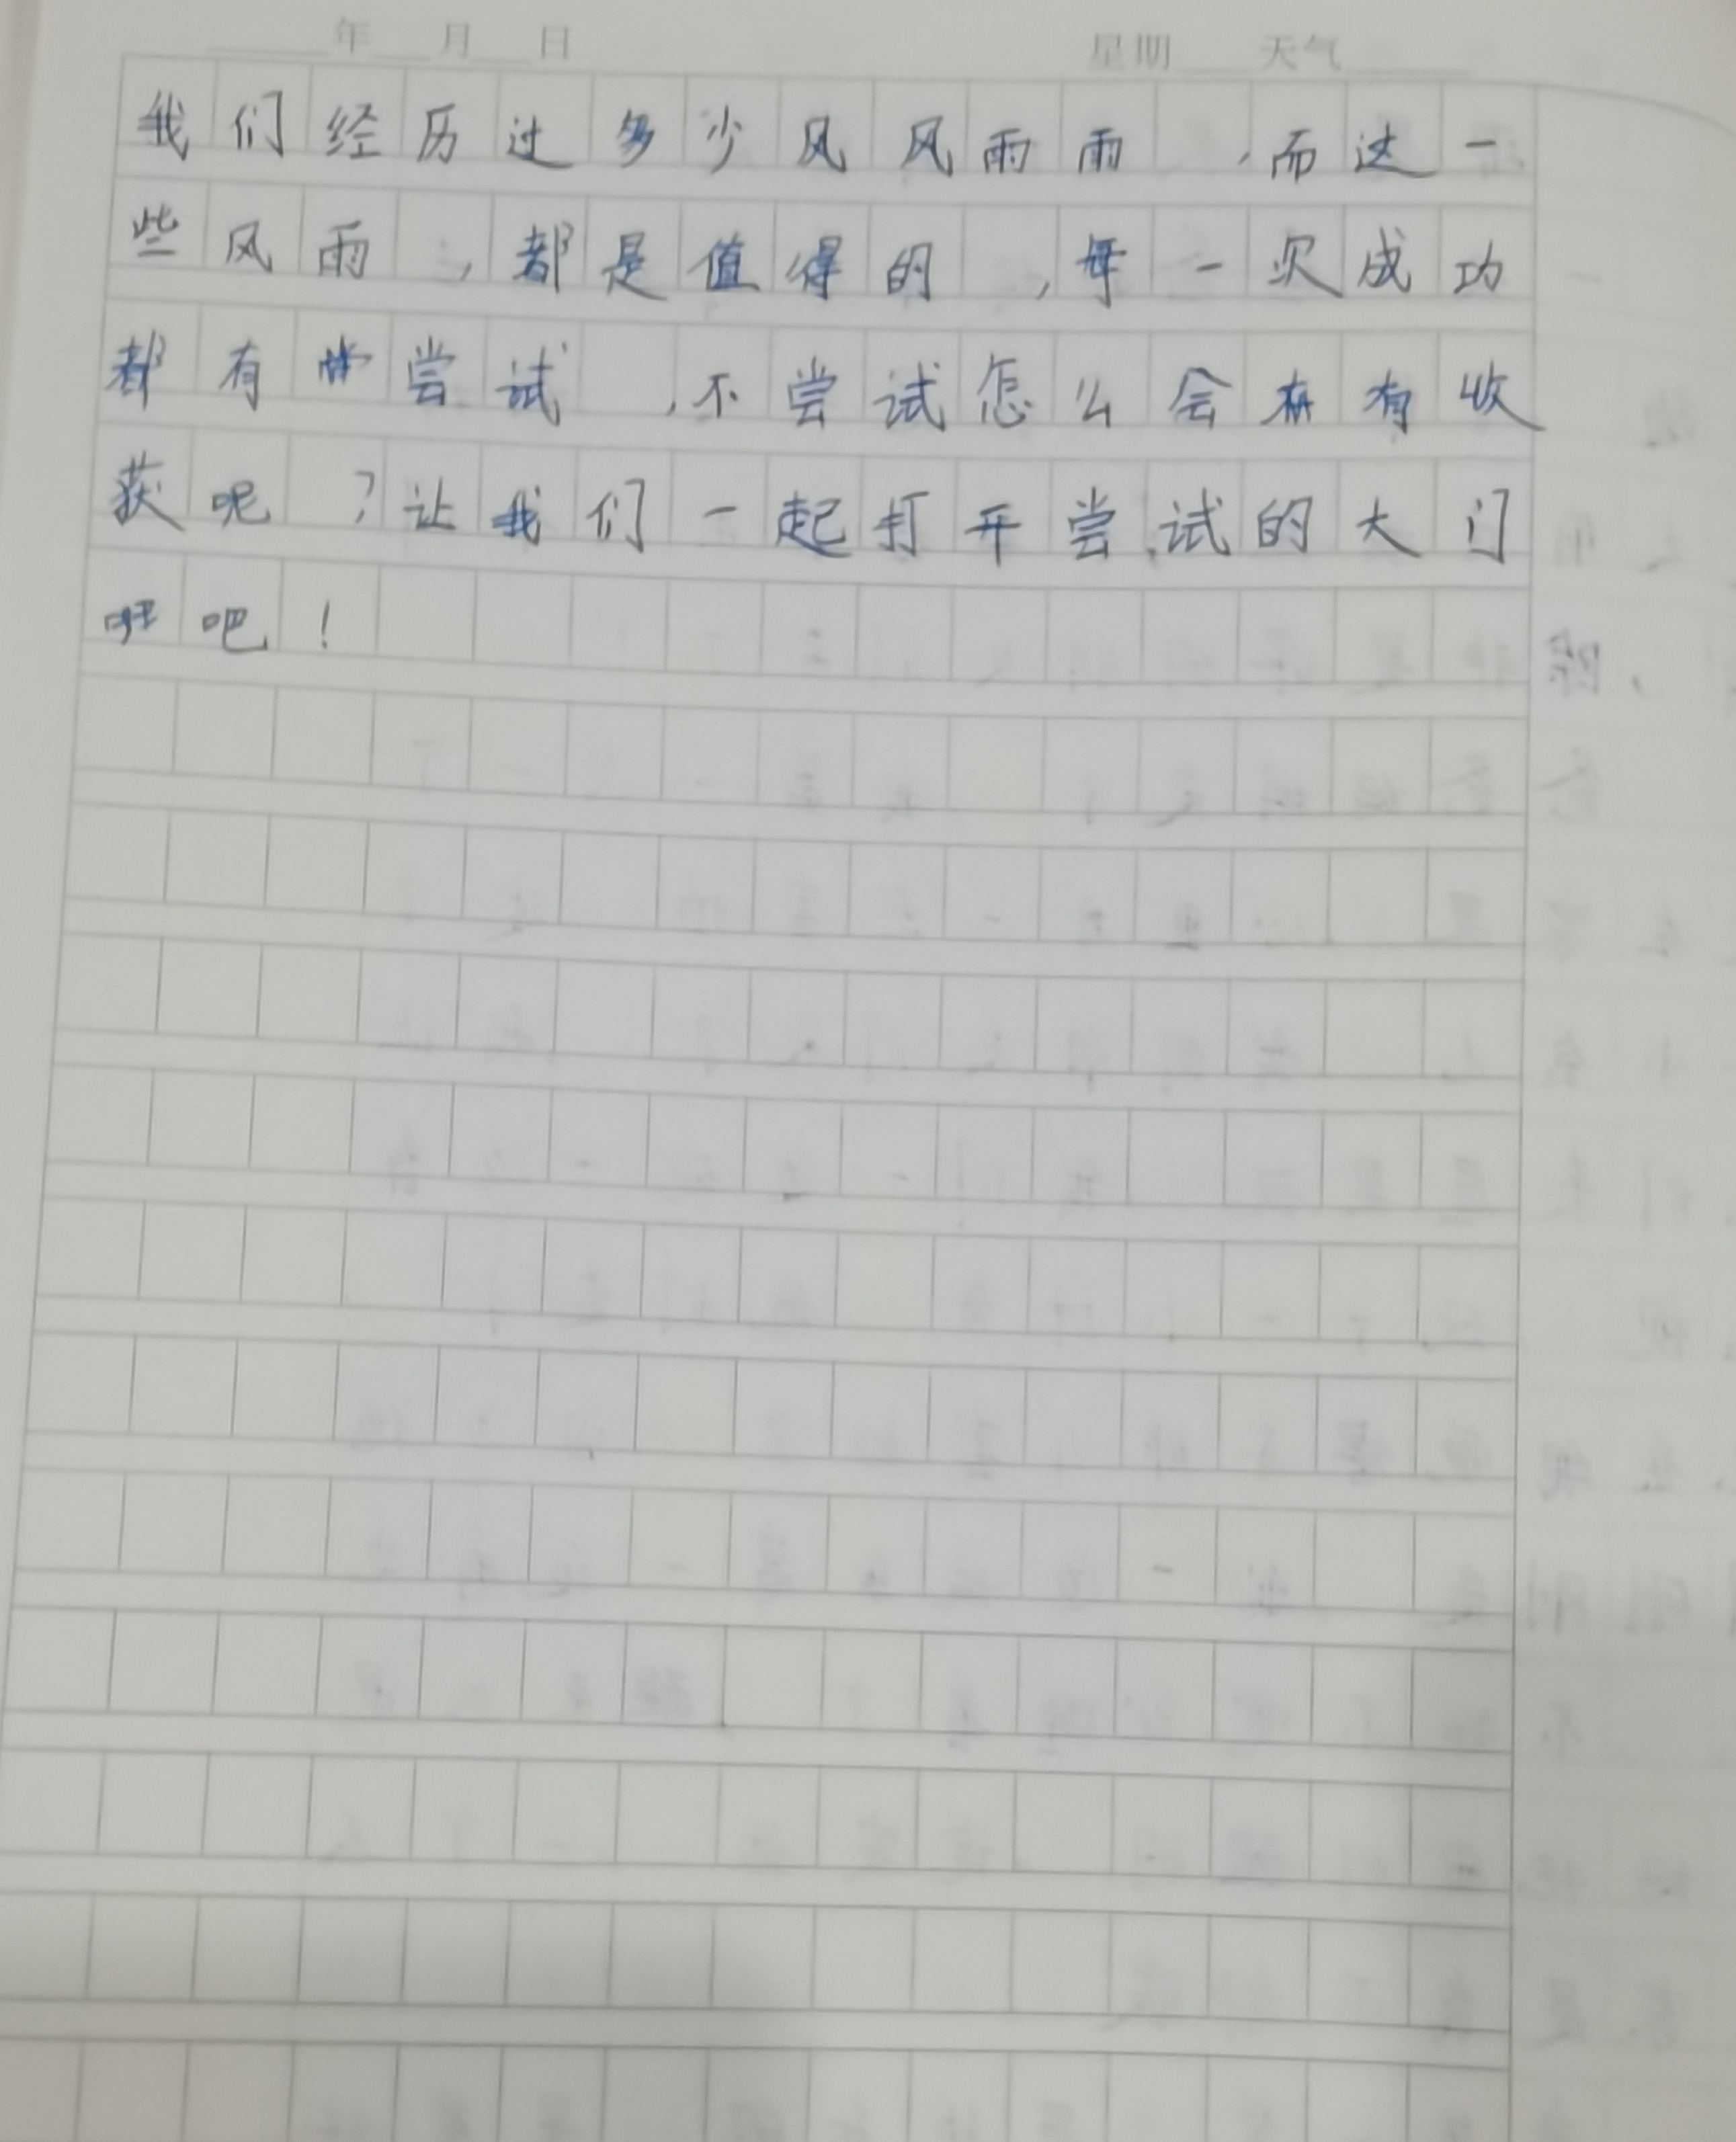 年 月 日 星期 天气
我们经历过多少风风雨雨,而这一
些风雨,都是值得的,每一次成功
都有尝试,不尝试怎么会有收
获呢?让我们一起打开尝试的大门
吧!